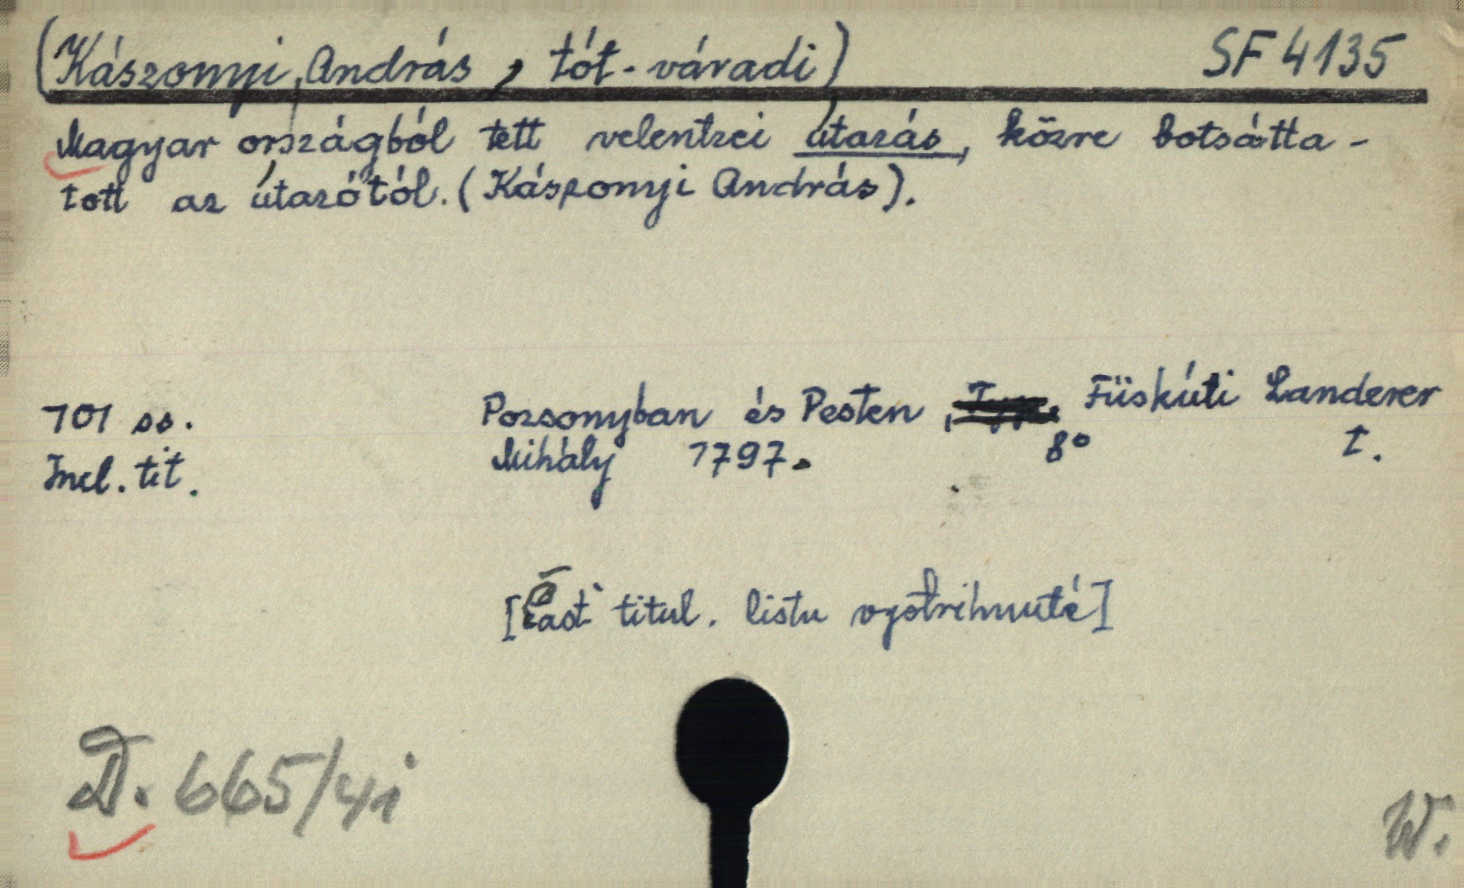 (Kászonyi, András, tót-váradi) SF 4135
Magyar országból tett velentzei útazás, közre botsátta-
tott az útazótól. (Kászonyi András).
101 ss. Pozsonyban és Pesten, Füskúti Landerer
Incl. tit. Mihály 1797. 8° I.
[Časť titul. listu vystrihnuté]
D. 665/41
W.